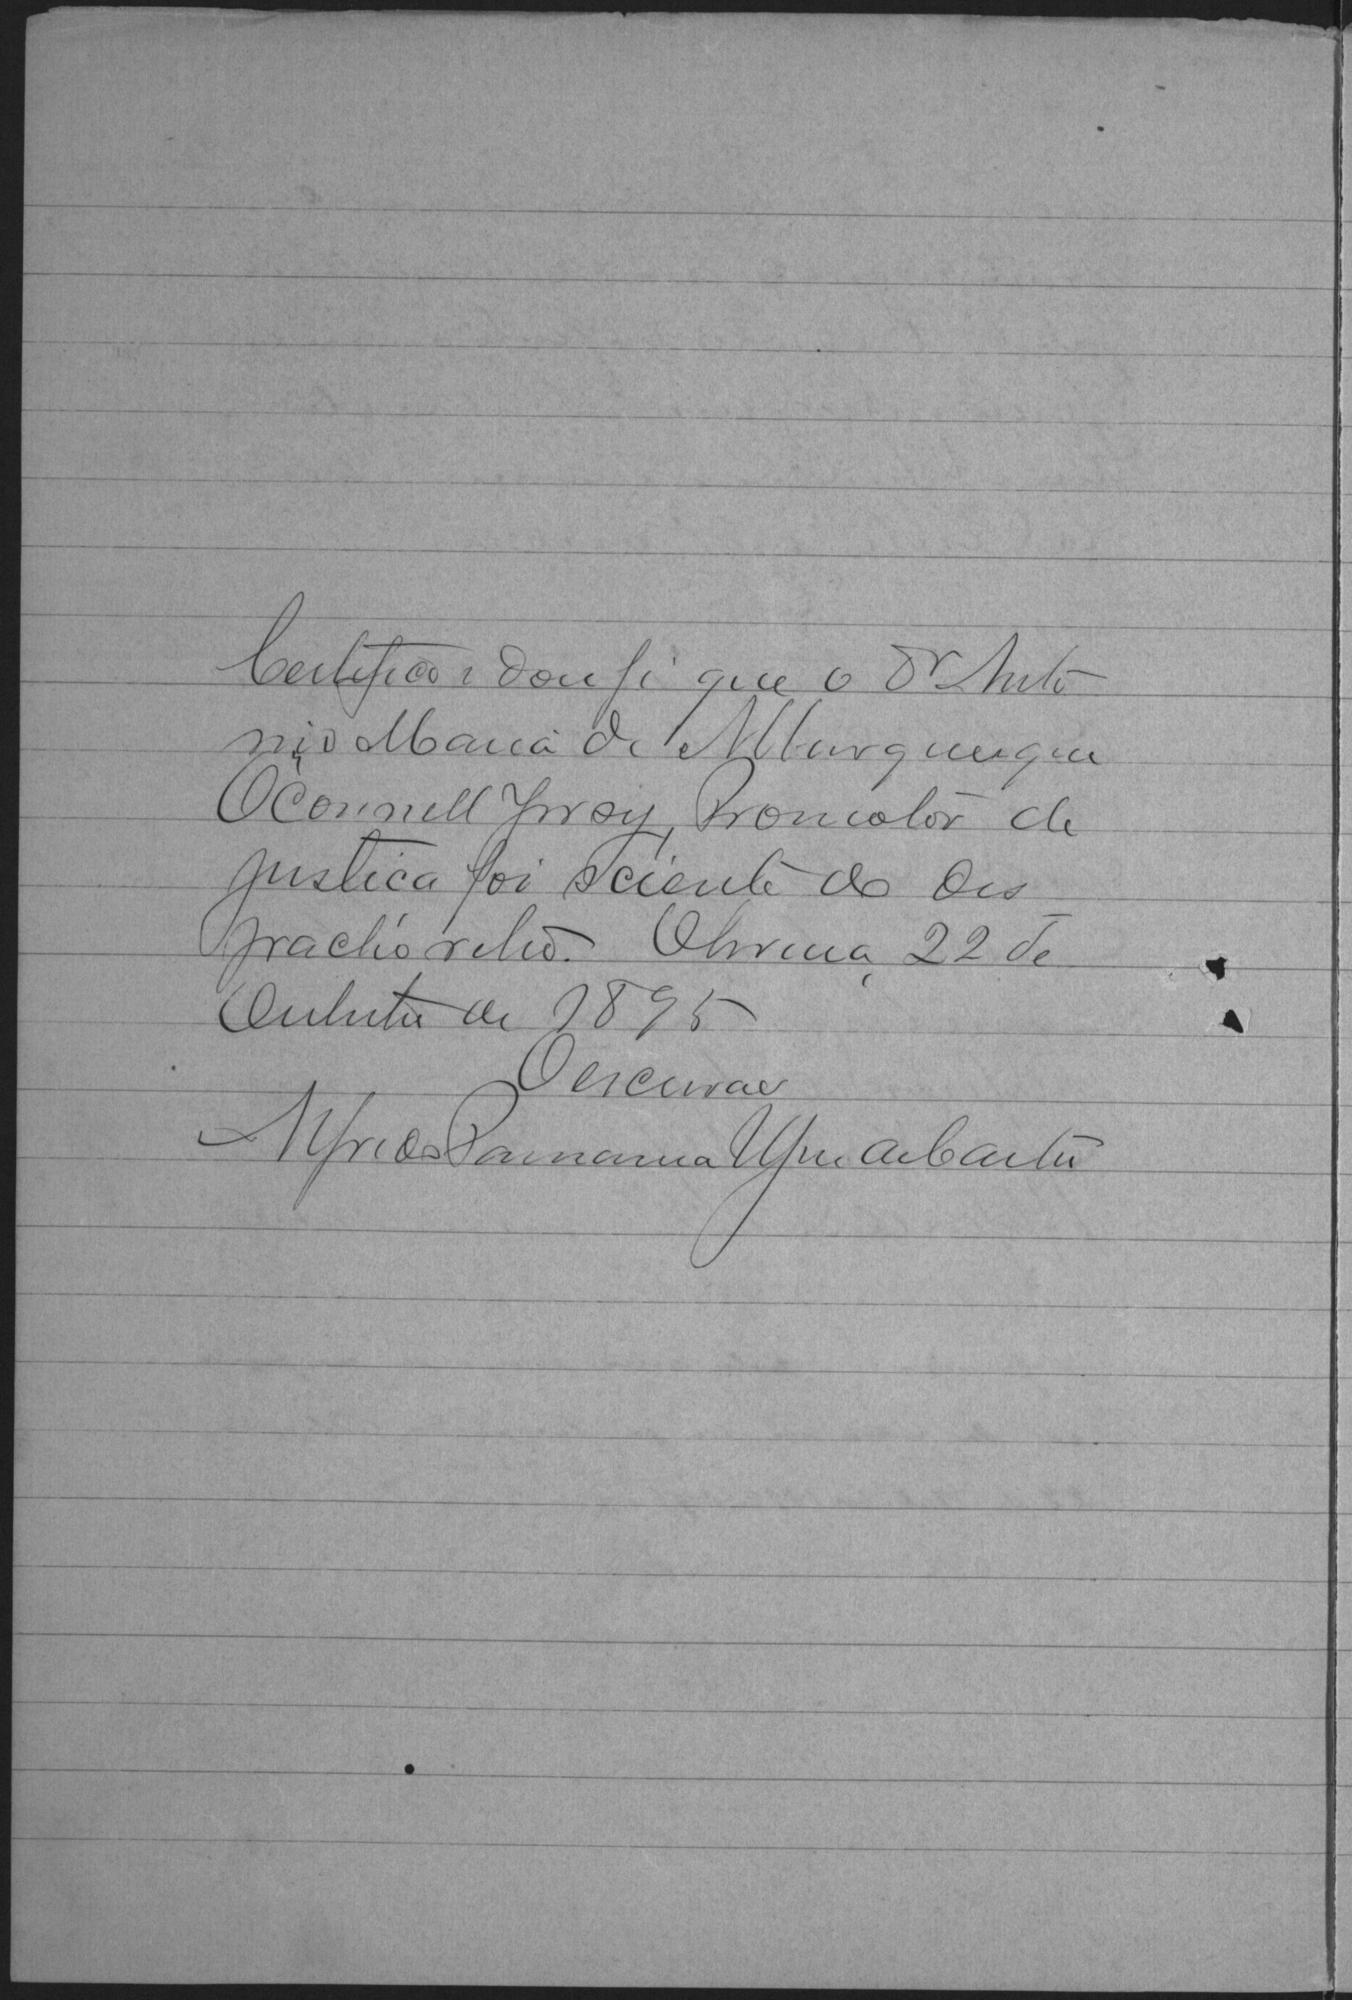 Certifico e dou fé que o Dr Anto
nio Maria de Albuquerque
O'Connell Jersey, Promotor de
justica foi sciente do des
pacho retro. 22 de
Outubro de 1895
O escrivão
Alfredo